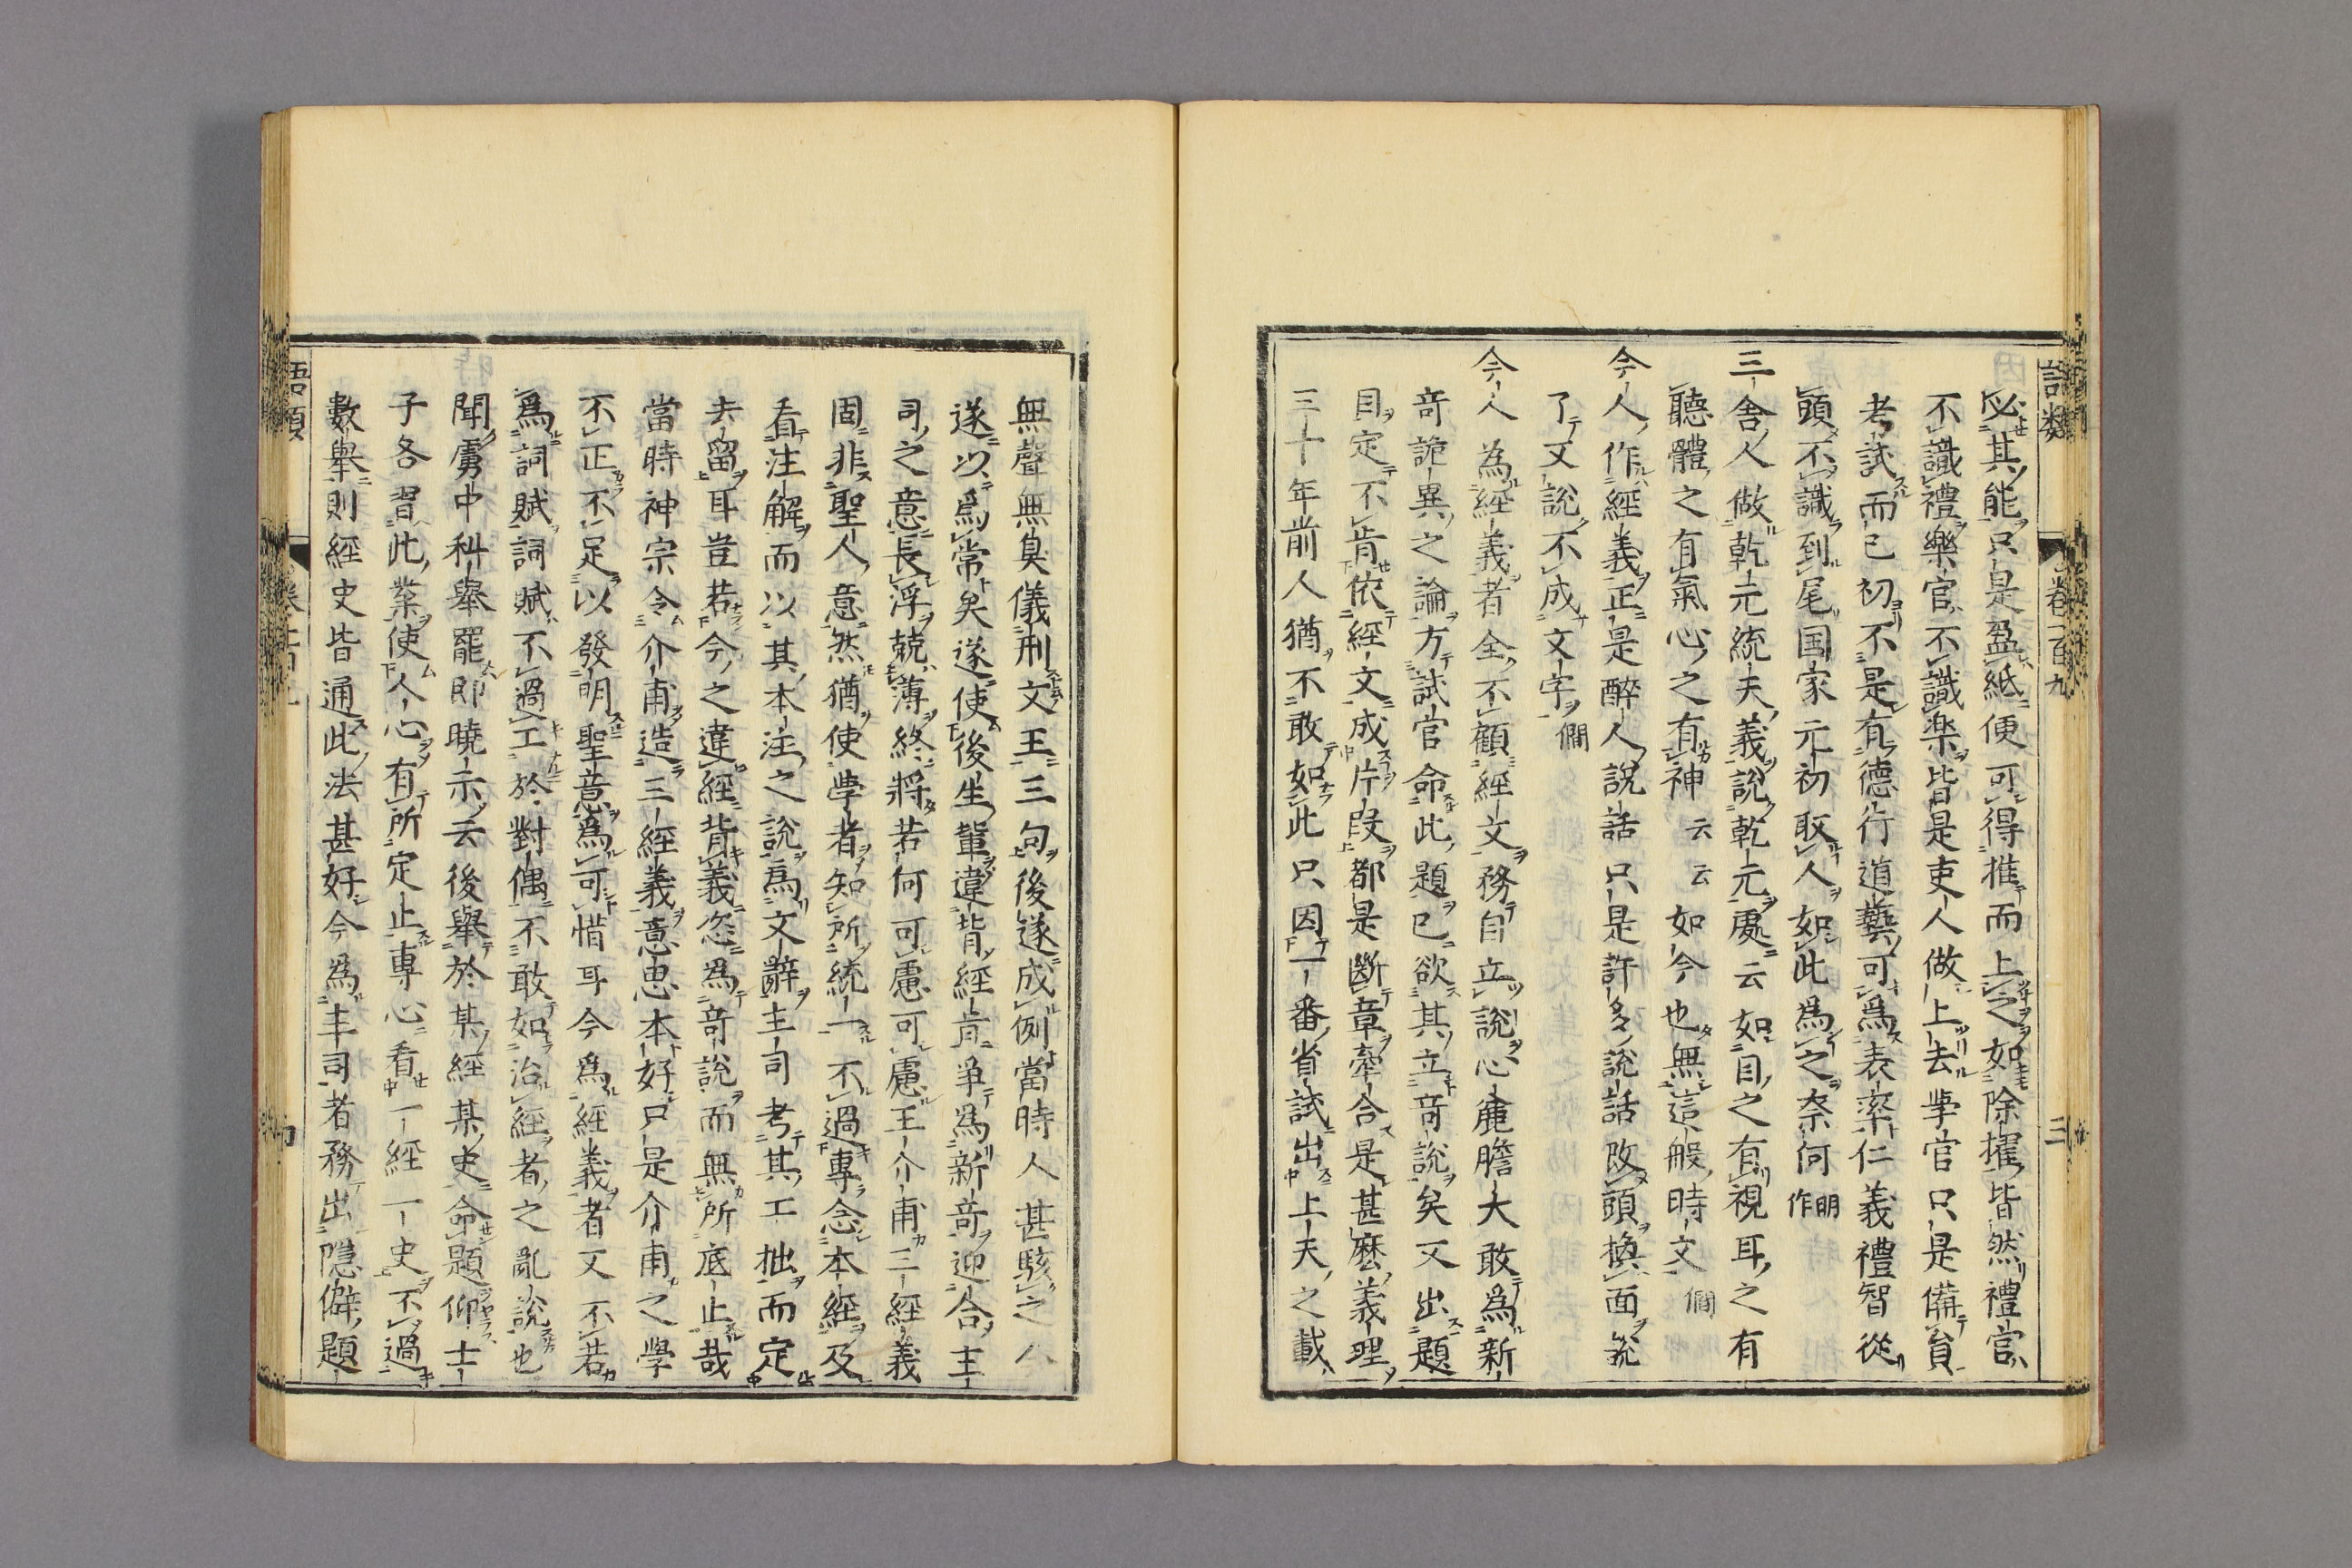 語類 卷一百九 三
必其能只是盈紙便可得推而上之如除擢皆然禮官
不識禮樂官不識楽皆是吏人做上去学官只是備員
考試而已初不是有德行道藝可爲表率仁義禮智從
頭不識到尾国家元初取人如此爲之奈何 明作
三舍人做乾元統夫義說乾元處云如目之有視耳之有
聽體之有氣心之有神 云云 如今也無這般時文 僩
今人作經義正是醉人說話只是許多說話改頭換面說
了又說不成文字 僩
今人為經義者全不顧經文務自立說心麁膽大敢爲新
奇詭異之論方試官命此題已欲其立奇說矣又出題
目定不肯依經文成片段都是斷章牽合是甚麽義理
三十年前人猶不敢如此只因一番省試出上天之載
無聲無臭儀刑文王三句後遂成例當時人甚駭之今
遂以爲常矣遂使後生輩違背經旨爭爲新奇迎合主
司之意長浮競薄終將若何可慮可慮王介甫三經義
固非聖人意然猶使學者知所統一不過專念本經及
看注解而以其本注之說爲文辭主司考其工拙而定
去留耳豈若今之違經背義恣為奇說而無所底止哉
當時神宗令介甫造三經義意思本好只是介甫之學
不正不足以發明聖意爲可惜耳今爲經義者又不若
爲詞賦詞賦不過工於對偶不敢如治經者之亂說也
聞虜中科舉罷即曉示云後舉於某經某史命題仰士
子各習此業使人心有所定止專心看一經一史不過
數舉則經史皆通此法甚好今為主司者務出隱僻題
語類